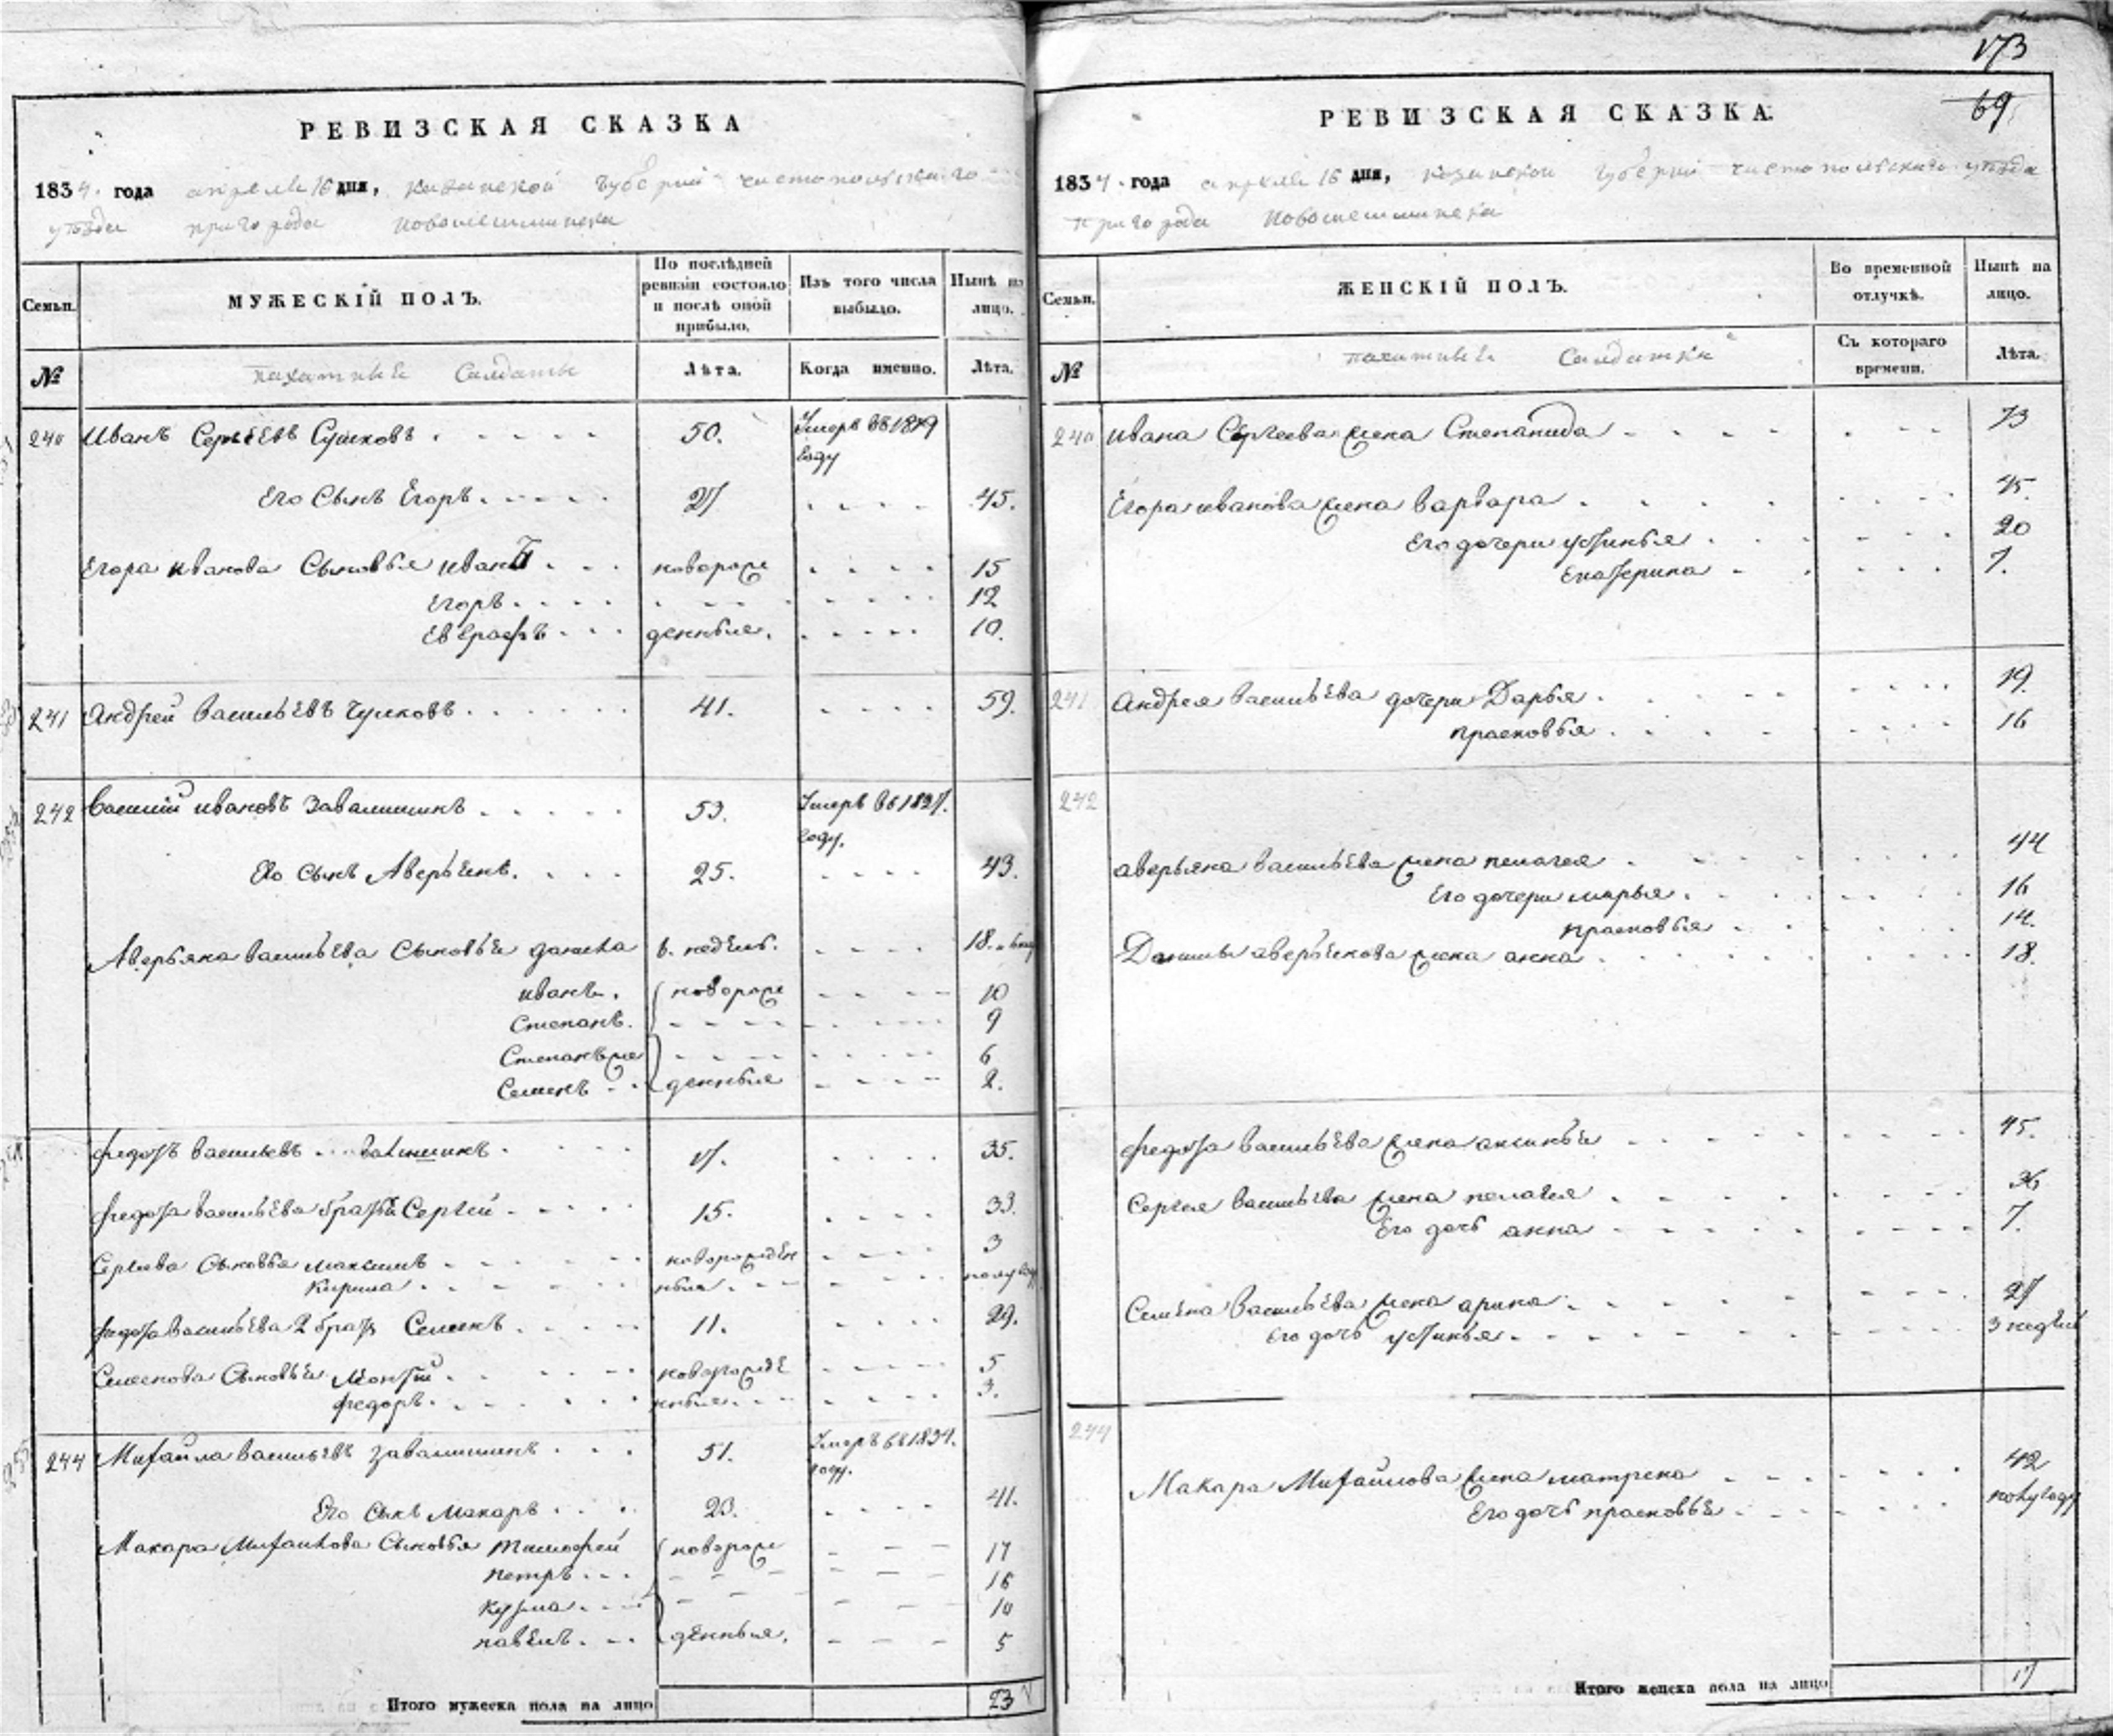 РЕВИЗСКАЯ СКАЗКА
1834. года апреля 16 дня, казанской губернии чистопольскаго
уѣзда пригорода новошешминска
Семьи.
МУЖЕСКІЙ ПОЛЪ.
По послѣдней ревизіи состояло и послѣ оной прибыло.
Изъ того числа выбыло.
Нынѣ на лицо.
№
пахатные Салдаты
Лѣта.
Когда именно.
Лѣта.
240 Иванъ Сергѣевъ 50. Умеръ въ 1829 году
Его Сынъ Егоръ. 27 45.
Егора иванова Сыновья иванъ новорож 15
Егоръ. 12
Евграфъ денныя. 10.
241 Андрей васильевъ чушковъ 41. 59.
242 василий ивановъ завалишинъ 53. Умеръ въ 1827. году.
Его сынъ Аверьянъ. 25. 43.
Аверьяна васильева Сыновья данила 6. недель. 18.
иванъ. новорож 10
Степанъ. 9
Степанъ же 6
Семенъ денныя 2.
федотъ васильевъ 17. 35.
федота васильева братъ Сергей 15. 33.
Сергеева Сыновья максимъ новорожден 3
Кирила ныя полугоду
федота васильева 2 братъ Семенъ 11. 29.
Семенова Сыновья новорожде 5
федоръ. нныя 3.
244 Михайла васильевъ завалишинъ 51. Умеръ въ 1831. году.
Его сынъ макаръ 23. 41.
Макара Михайлова Сыновья тимофей новорож 17
петръ 16
кузма 10
павелъ денныя. 5
Итого мужеска пола на лицо 23
173
69
РЕВИЗСКАЯ СКАЗКА.
1834. года апреля 16 дня, казанской губернии чистопольскаго уѣзда
пригорода новошешминска
Семьи.
ЖЕНСКІЙ ПОЛЪ.
Во временной отлучкѣ.
Нынѣ на лицо.
№
пахатные Салдатки
Съ котораго времени.
Лѣта.
240 ивана Сергеева жена Степанида 73
Егора иванова жена варвара 45.
Его дочери устинья 20
Екатерина 7.
241 Андрея васильева дочери Дарья 19.
прасковья 16
242
аверьяна васильева жена пелагея 44
Его дочери марья 16
прасковья 14.
Данилы аверьянова жена анна 18.
федота васильева жена аксинья 45.
Сергея васильева жена пелагея 36
Его дочь анна 7.
Семена васильева жена арина 27
его дочь устинья 3 недели
244
Макара Михайлова жена матрена 42
Его дочь прасковья полугоду
Итого женска пола на лицо 17